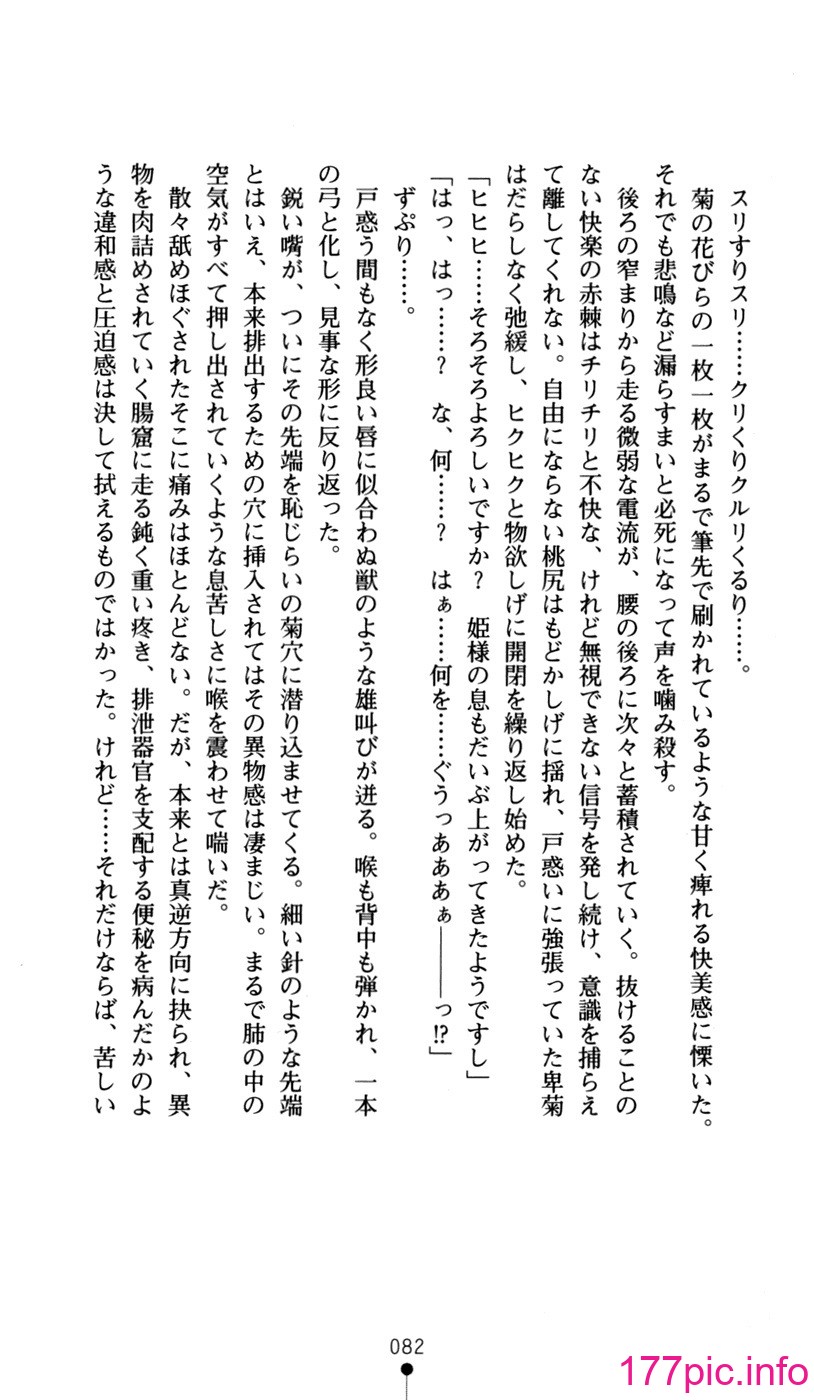 スリすりスリ……クリくりクルリくるり……。
菊の花びらの一枚一枚がまるで筆先で刷かれているような甘く痺れる快美感に慄いた。
それでも悲鳴など漏らすまいと必死になって声を噛み殺す。
後ろの窄まりから走る微弱な電流が、腰の後ろに次々と蓄積されていく。抜けることの
ない快楽の赤棘はチリチリと不快な、けれど無視できない信号を発し続け、意識を捕らえ
て離してくれない。自由にならない桃尻はもどかしげに揺れ、戸惑いに強張っていた卑菊
はだらしなく弛緩し、ヒクヒクと物欲しげに開閉を繰り返し始めた。
「ヒヒヒ……そろそろよろしいですか？　姫様の息もだいぶ上がってきたようですし」
「はっ、はっ……？　な、何……？　はぁ……何を……ぐうっあああぁ――――っ!?」
ずぷり……。
戸惑う間もなく形良い唇に似合わぬ獣のような雄叫びが迸る。喉も背中も弾かれ、一本
の弓と化し、見事な形に反り返った。
鋭い嘴が、ついにその先端を恥じらいの菊穴に潜り込ませてくる。細い針のような先端
とはいえ、本来排出するための穴に挿入されてはその異物感は凄まじい。まるで肺の中の
空気がすべて押し出されていくような息苦しさに喉を震わせて喘いだ。
散々舐めほぐされたそこに痛みはほとんどない。だが、本来とは真逆方向に抉られ、異
物を肉詰めされていく腸窟に走る鈍く重い疼き、排泄器官を支配する便秘を病んだかのよ
うな違和感と圧迫感は決して拭えるものではかった。けれど……それだけならば、苦しい
082
177pic.info